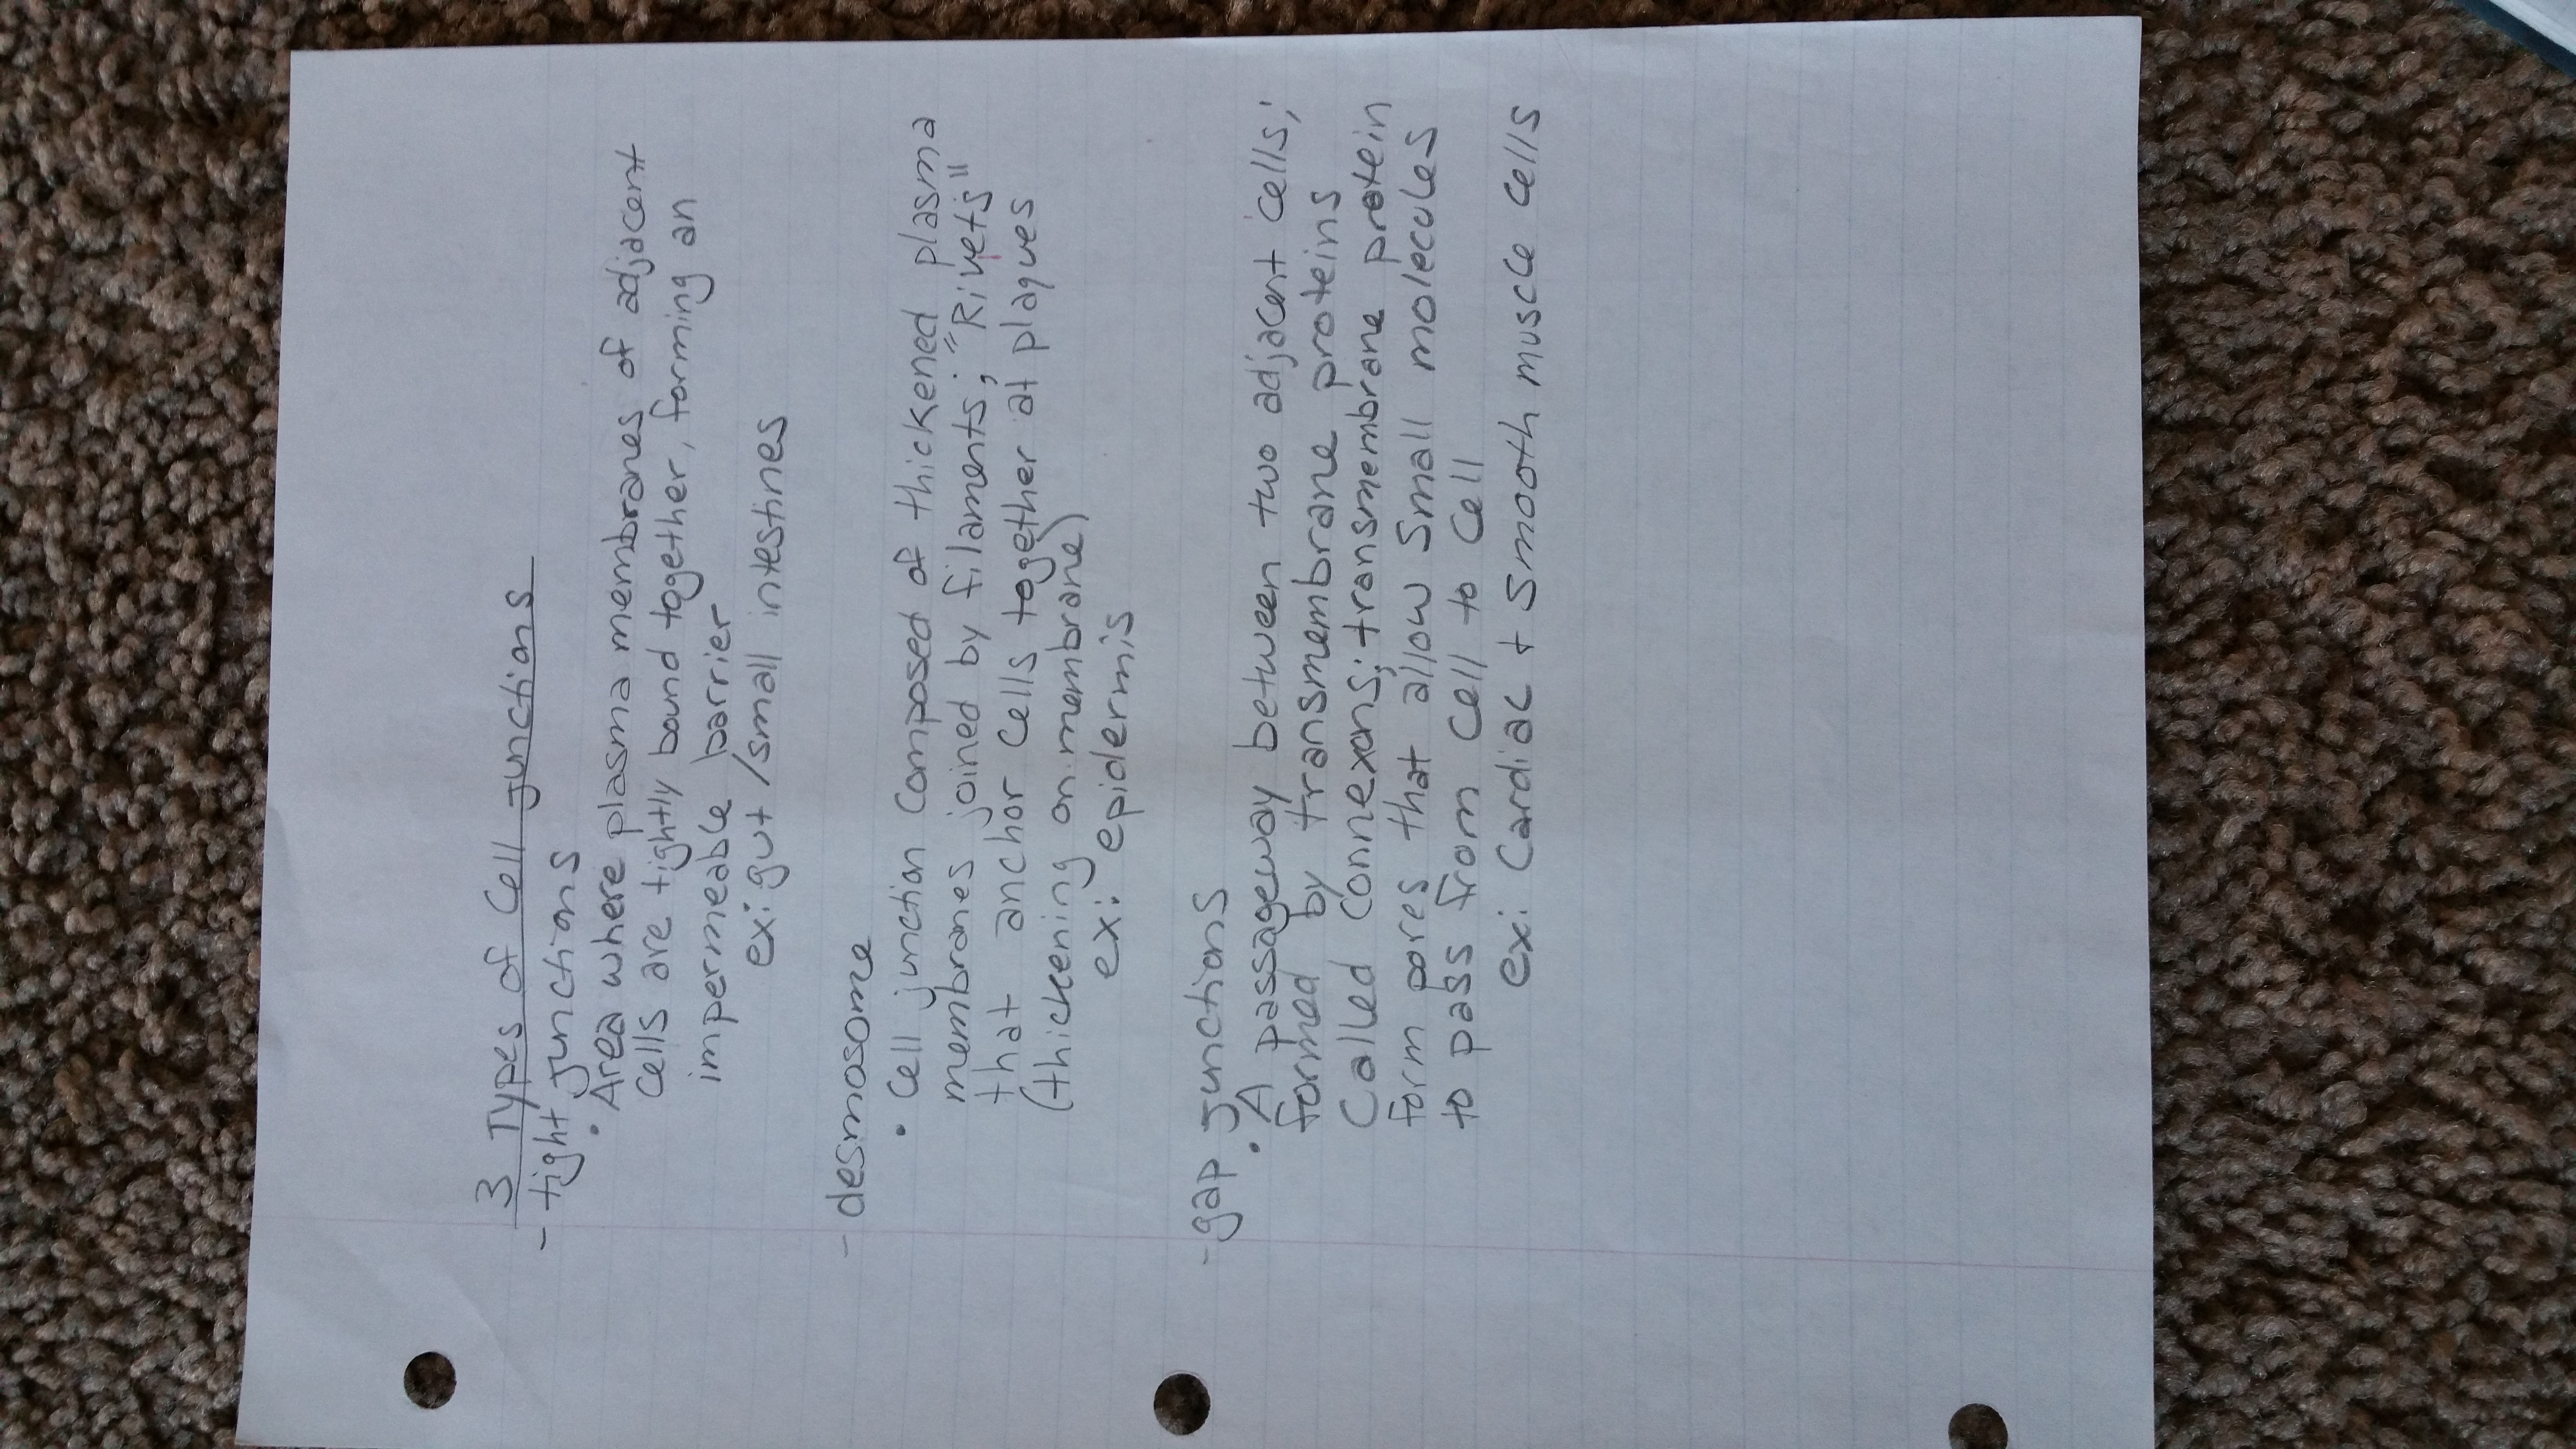 3 Types of Cell junctions
- tight junctions
• Area where plasma membranes of adjacent
cells are tightly bound together, forming an
impermeable barrier
ex: gut /small intestines
- desmosome
• Cell junction composed of thickened plasma
membranes joined by filaments; "Rivets"
that anchor cells together at plaques
(thickening on membrane)
ex: epidermis
- gap junctions
• A passageway between two adjacent cells;
formed by transmembrane proteins
called connexons; transmembrane protein
form pores that allow small molecules
to pass from cell to cell
ex: Cardiac + smooth muscle cells